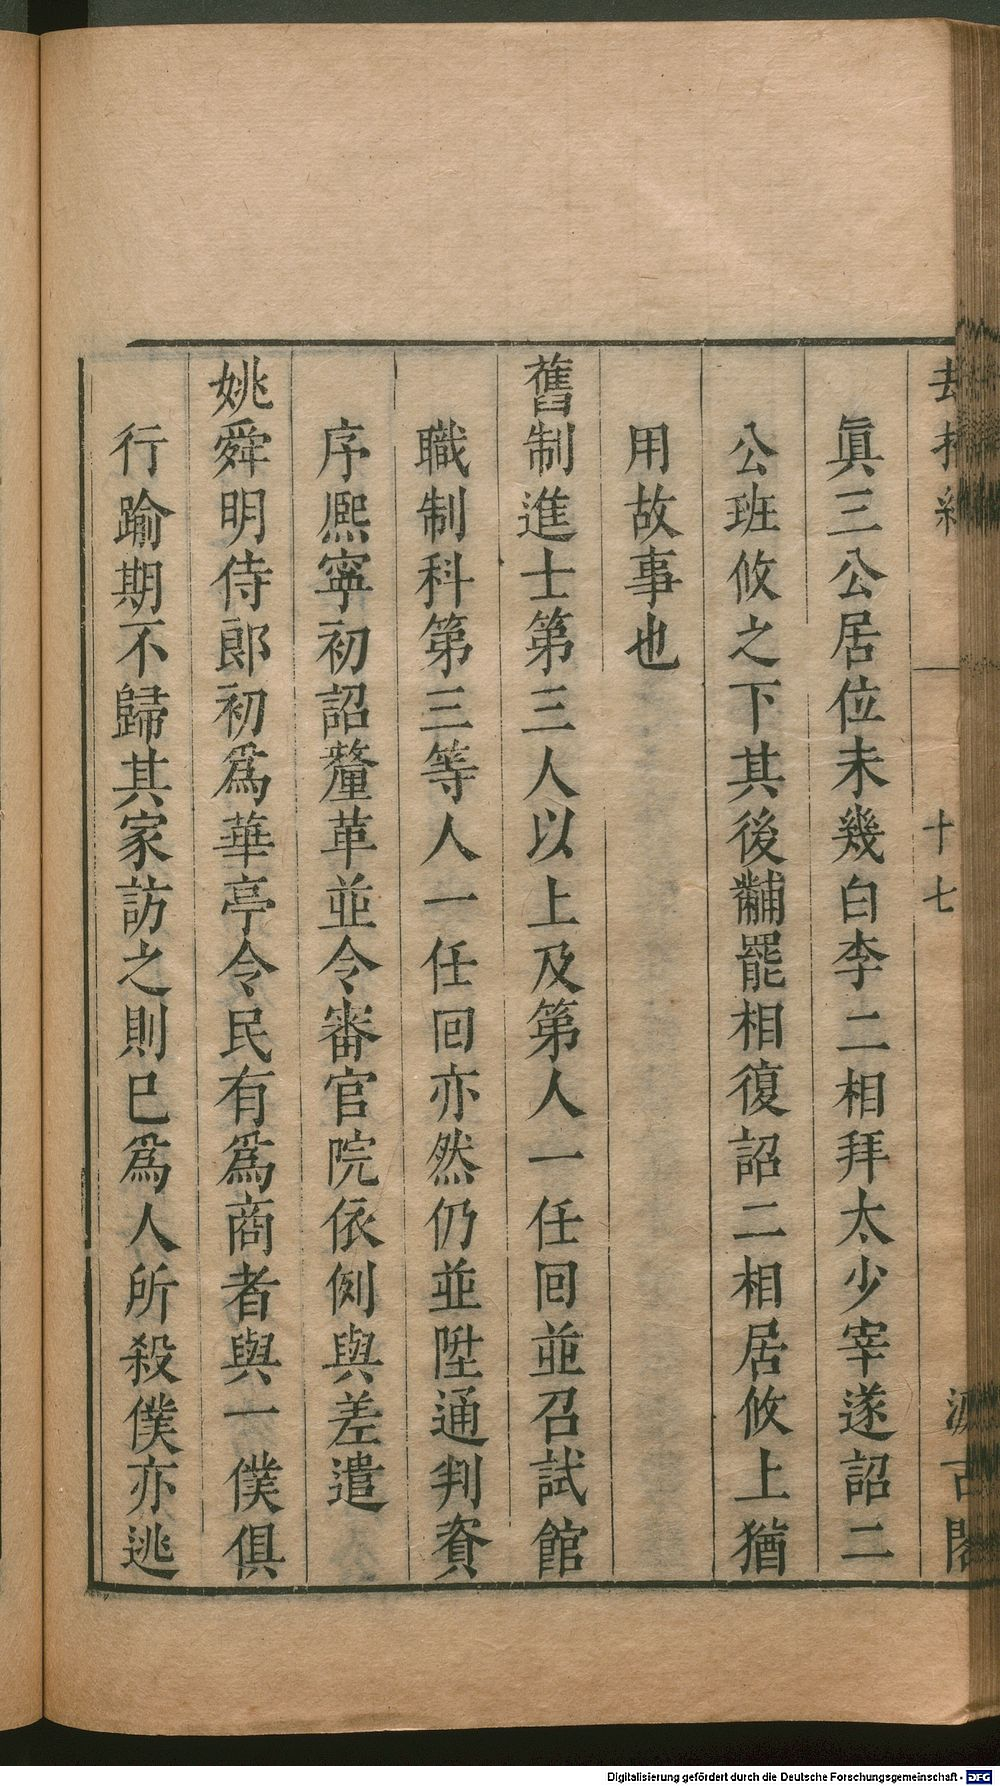 十七
眞三公居位未幾白李二相拜太少宰遂詔二
公班攸之下其後黼罷相復詔二相居攸上猶
用故事也
舊制進士第三人以上及第人一任回並召試館
職制科第三等人一任回亦然仍並陞通判資
序熈寧初詔釐革並令審官院依例與差遣
姚舜明侍郎初爲華亭令民有爲商者與一僕俱
行踰期不歸其家訪之則巳爲人所殺僕亦逃
Digitalisierung gefördert durch die Deutsche Forschungsgemeinschaft - DFG